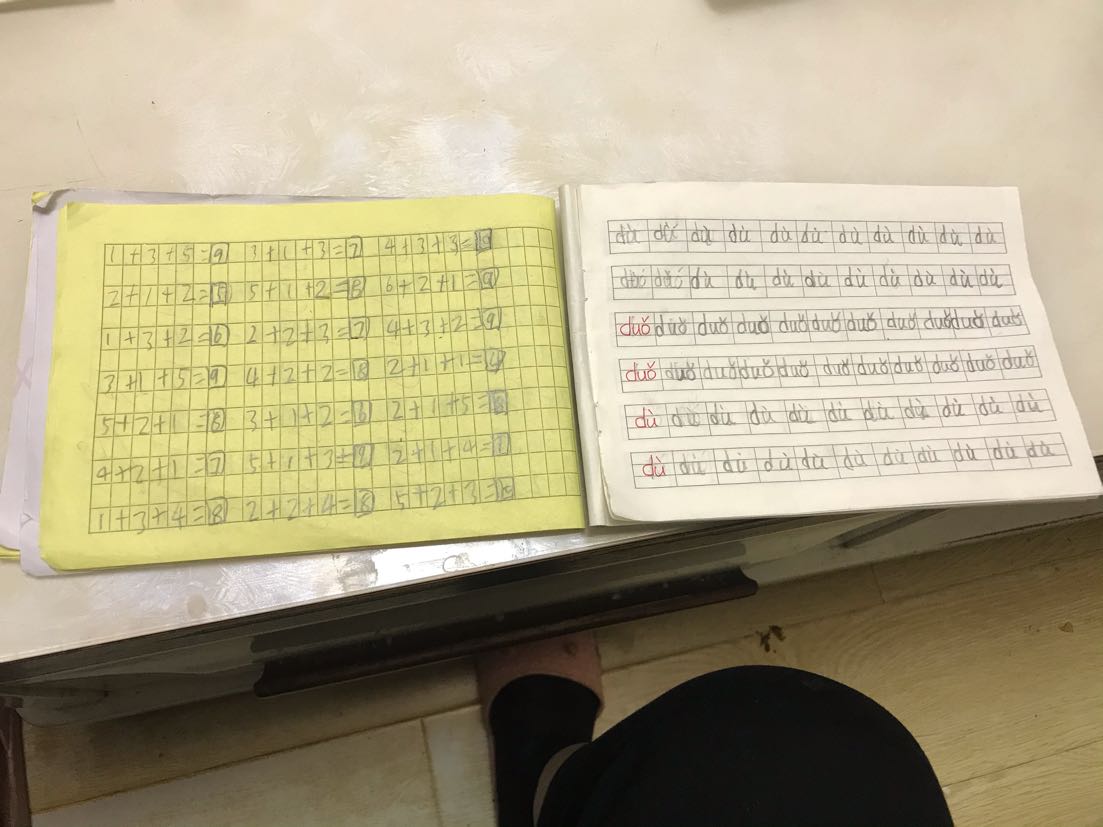 1+3+5=9 3+1+3=7 4+3+3=10
2+1+2=5 5+1+2=8 6+2+1=9
1+3+2=6 2+2+3=7 4+3+2=9
3+1+5=9 4+2+2=8 2+1+1=4
5+2+1=8 3+1+2=6 2+1+5=8
4+2+1=7 5+1+3=9 2+1+4=7
1+3+4=8 2+2+4=8 5+2+3=10
dù dù dù dù dù dù dù dù dù dù dù
dù dù dù dù dù dù dù dù dù
duǒ duǒ duǒ duǒ duǒ duǒ duǒ duǒ duǒ duǒ duǒ
duǒ duǒ duǒ duǒ duǒ duǒ duǒ duǒ duǒ duǒ duǒ
dù dù dù dù dù dù dù dù dù dù dù
dù dù dù dù dù dù dù dù dù dù dù